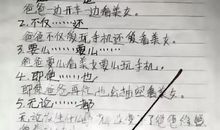 爸爸一边开车一边看美女。
2.不仅……还
爸爸不仅爱玩手机还爱看美女。
3.要么……要么……
爸爸要么看美女要么玩手机。
4.即使……也
即使爸爸再忙也会抽空看美女。
5.无论……都
无论